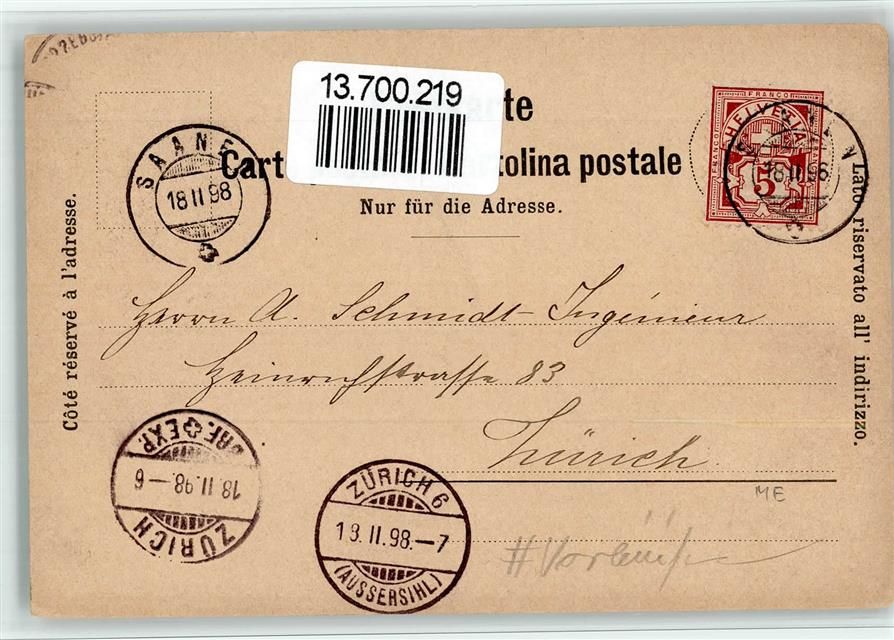 13.700.219
te
Cart tolina postale
Nur für die Adresse.
Côté réservé à l'adresse.
Lato riservato all' indirizzo.
SAANE
18 II 98
FRANCO
HELVETIA
FRANCO
FRANCO
5
18 II 98
Herrn A. Schmidt-Ingenieur
Heinrichstrasse 83
Zürich
BRF. EXP.
18.II.98.-6
ZÜRICH
ZÜRICH 6
18.II.98.-7
(AUSSERSIHL)
ME